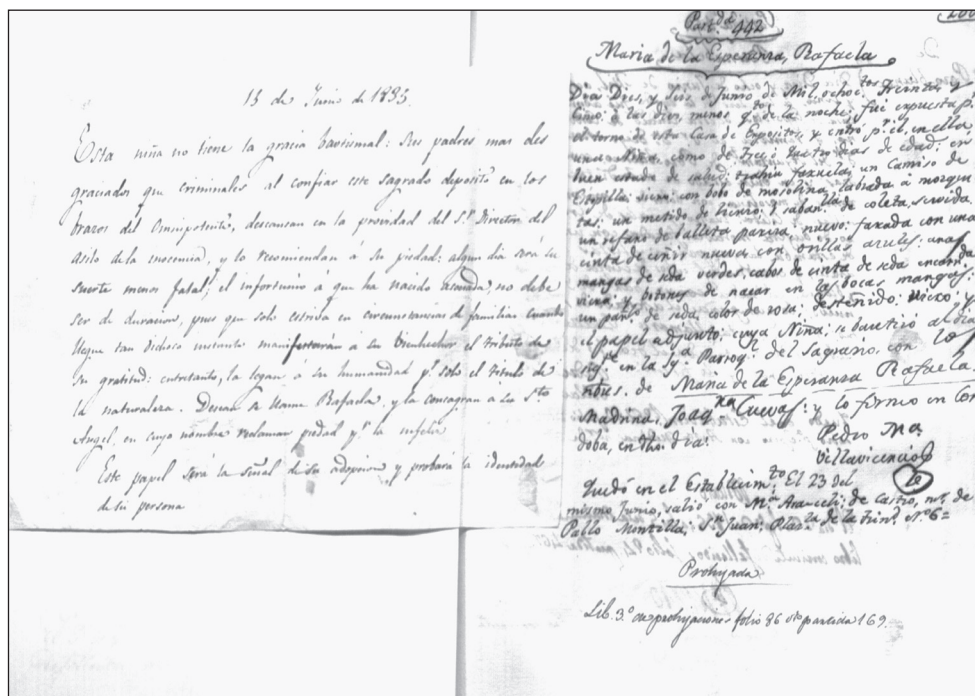 15 de Junio de 1835.
Esta niña no tiene la gracia bautismal: sus padres mas des
graciados que criminales al confiar este sagrado deposito en los
brazos del Omnipotente, descansan en la providad del Sr. Director del
asilo de la inocencia, y lo recomiendan á su piedad: algun dia será su
suerte menos fatal; el infortunio á que ha nacido no debe
ser de duracion, pues que solo estriva en circunstancias de familia: cuando
llegue tan dichoso momento manifestarán a su bienhechor el tributo de
su gratitud: entretanto, la legan a su humanidad pr. solo el titulo de
la naturaleza. Desean se llame Rafaela, y la consagran a su Sto
Angel, en cuyo nombre reclaman piedad pa. la infeliz
Este papel será la señal de su adopcion y probará la identidad
de su persona
Part.da 442
Maria de la Esperanza, Rafaela
Dia Diez, y seis de Junio de Mil, ochoc.tos Treinta, y
Cinco: á las diez, menos q.to de la noche: fué expuesta p.r
el torno de esta Casa de Expositos, y entró p.r él, en ella
una Niña, como de tres, ó quatro dias de edad: en
buen estado de salud: trahia faxuela: un Camiso de
Estopilla, con bobo de mosolina, labrada á
un metido de lienzo: y saban.lla de coleta, servida
un refaxo de balleta nuevo: faxada con una
cinta de ceñir nueva, con orillas azules: unas
mangas de seda verdes, cabos de cinta de seda encarn.da
y botones de nacar en las bocas mangas,
un pañ.lo de seda, color de rosa, desteñido, viexo; y
el papel adjunto; cuya Niña, se bautizó al dia
sig.te en la Yg.a Parroq.l del Sagrario, con los
nbus. de Maria de la Esperanza Rafaela.
Madrina, Joaq.na Cuevas: y lo firmo en Cor
doba, en dho. dia:
Pedro M.a
Villavicencio
Quedó en el Establecim.to El 23 del
mismo Junio, salió con M.a Araceli, de Castro, m.r de
Pablo Montilla; S.n Juan, Plaz.la de la Trin.d N.º 6=
Prohijada
Lib. 3.º de prohijaciones folio 86 vto partida 169.